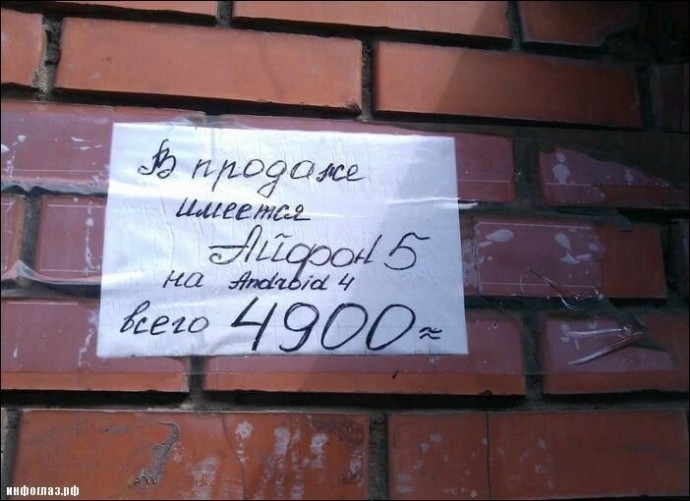 В продаже
имеется
Айфон 5
на Android 4
всего 4900=
инфоглаз.рф